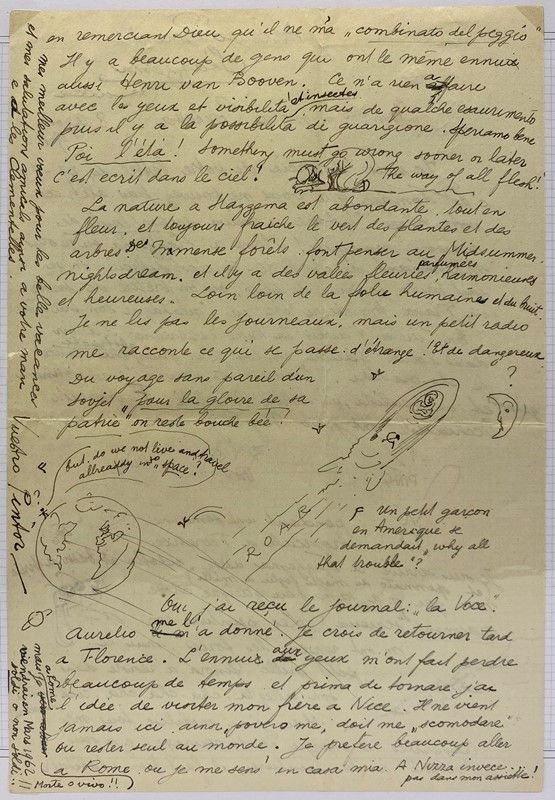 en remerciant Dieu, qu'il ne m'a „combinato del peggio"
Il y a beaucoup de gens qui ont le même ennui
aussi Henri van Booven. Ce n'a rien a faire
avec les yeux et visibilité et insectes, mais de qualche esaurimento
puis il y a la possibilità di guarigione. Speriamo bene
Poi l'età! something must go wrong sooner or later
C'est ecrit dans le ciel! the way of all flesh!
La nature a Hazzema est abondante, tout en
fleur, et toujours fraiche le vert des plantes et des
arbres Des Immense forêts, font penser au Midsummer-
nightsdream, et il y a des valées fleuries, parfumées, harmonieuses
et heureuses. Loin loin de la folie humaine, et du bruit.
Je ne lis pas les journeaux, mais un petit radio
me raconte ce qui se passe d'étrange! Et de dangereux
Du voyage sans pareil d'un
sovjet „pour la gloire de sa
patrie" on reste bouche bée!
?
but do we not live and travel
allreaddy into „space"!
ROAR
un petit garçon
en Amerique se
demandait „why all
that trouble"?
Oui, j'ai reçu le journal: „la Voce".
Aurelio me l'a donné. Je crois de retourner tard
a Florence. L'ennui aux yeux m'ont fait perdre
beaucoup de temps et prima di tornare j'ai
l'idée de visiter mon frère a Nice. Il ne vient
jamais ici ainsi „povero me, doit me „scomodare"
ou rester seul au monde. Je prefere beaucoup aller
a Rome, ou je me sens' in casa mia. A Nizza invece..
pas dans mon assiette!
mes meilleur vœux pour les belle vacances
et mes salutation amicale aynsi a votre mari
e a le Clementelles.
Vuestro Pintor
mais a Rome
viendrai en Mars 1962
soldi o non soldi!!
Morte o vivo!!